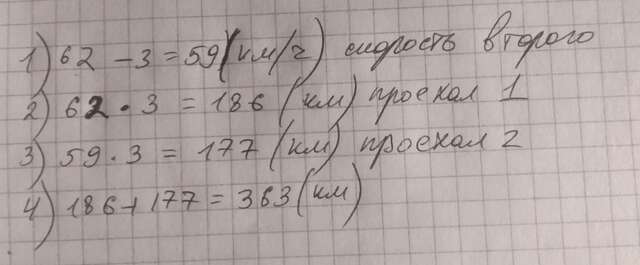 1) 62 - 3 = 59 (км/г) скорость второго
2) 62 · 3 = 186 (км) проехал 1
3) 59 · 3 = 177 (км) проехал 2
4) 186 + 177 = 363 (км)